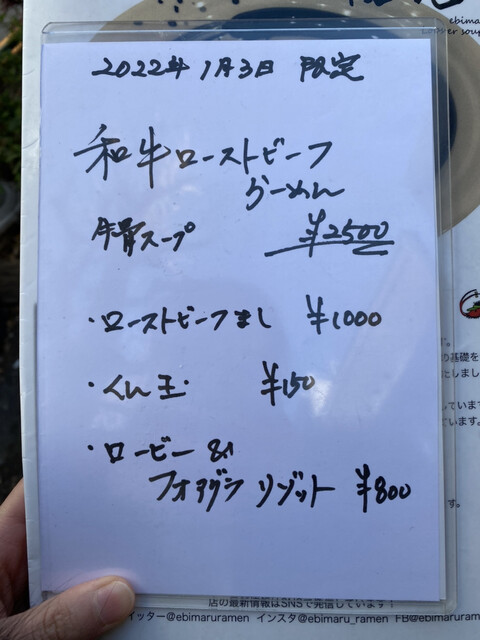 2022年 1月3日 限定
和牛ローストビーフ
らーめん
牛骨スープ ¥2500
・ローストビーフまし ¥1000
・くん玉・ ¥150
・ロービー &
フォアグラ リゾット ¥800
の基礎を
としまし
しています
ています。
す。
店の最新情報はSNSで発信しています！
イッター@ebimaruramen インスタ@ebimaru_ramen FB@ebimaruramen